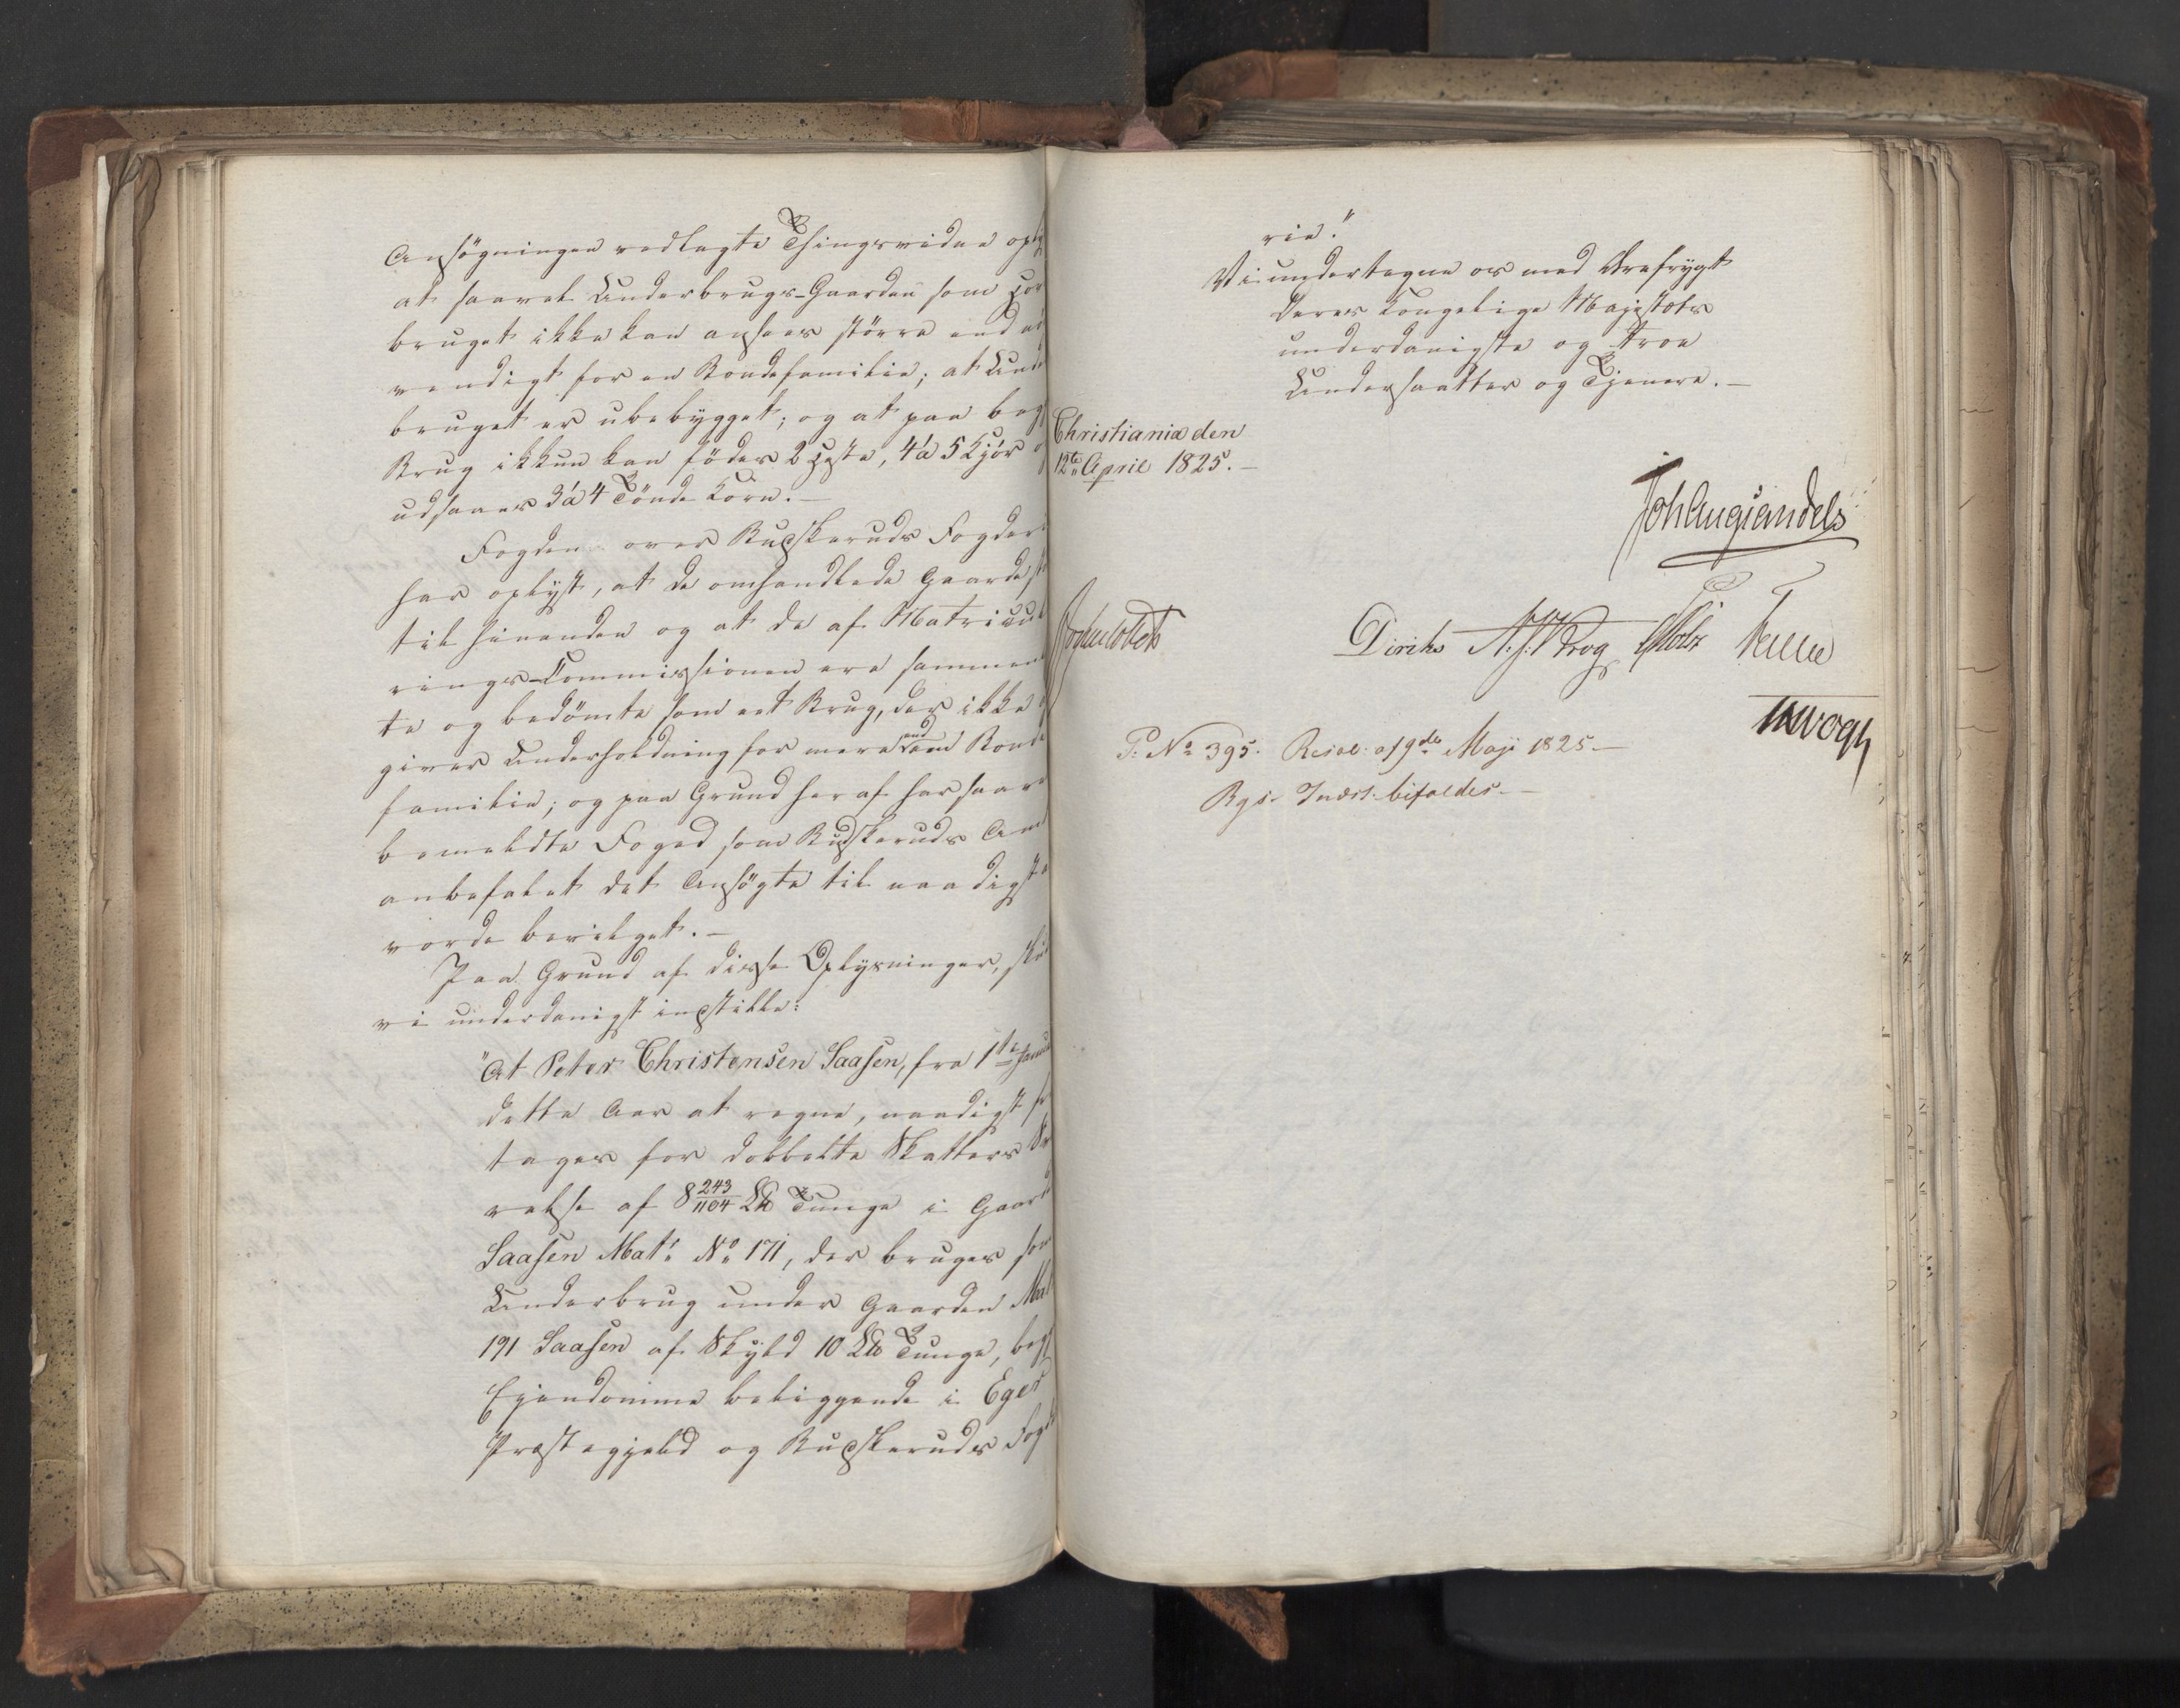 Ansögningen vedlagte Thingsvidne oply
at saavel Underbrugs-Gaarden som Hov
bruget ikke kan ansees större end nö
vendigt for en Bondefamilie; at Unde
bruget er ubebygget; og at paa begge
Brug ikkun kan födes 2 Heste, 4 á 5 Kjör o
udsaaes 3 á 4 Tönde Korn.—
Fogden over Buskeruds Fogder
har oplyst, at de omhandlede Gaarde st
til hinanden og at de af Matricul
rings-Commissionen ere sammen
te og bedömte som eet Brug, der ikke
giver Underholdning for mere end een Bonde
familie; og paa Grund heraf har saave
bemeldte Foged som Buskeruds Amt
anbefalet det Ansögte til naadigst
vorde bevilget.—
Paa Grund af disse Oplysninger, skul
vi underdanigst indstille:
"At Peter Christensen Saasen, fra 1te Janua
dette Aar at regne, naadigst fr
tages for dobbelte Skatters Sv
relse af 8 243/1104 L℔ Tunge i Gaard
Saasen Mat: No 171, der bruges som
Underbrug under Gaarden Mat
191 Saasen af Skyld 10 L℔ Tunge, beg
Ejendomme beliggende i Eger
Præstegjeld og Buskeruds Fogde
rie."
Vi undertegne os med Ærefrygt
Deres Kongelige Majestæts
underdanigste og troe
Undersaatter og Tjenere.—
Christiania den
12te April 1825.—
Joh Aug Sandels
Diriks N. J. Krog
P: No 395. Resol: af 9de Maji 1825—
Rgs. Indst. bifaldes.—